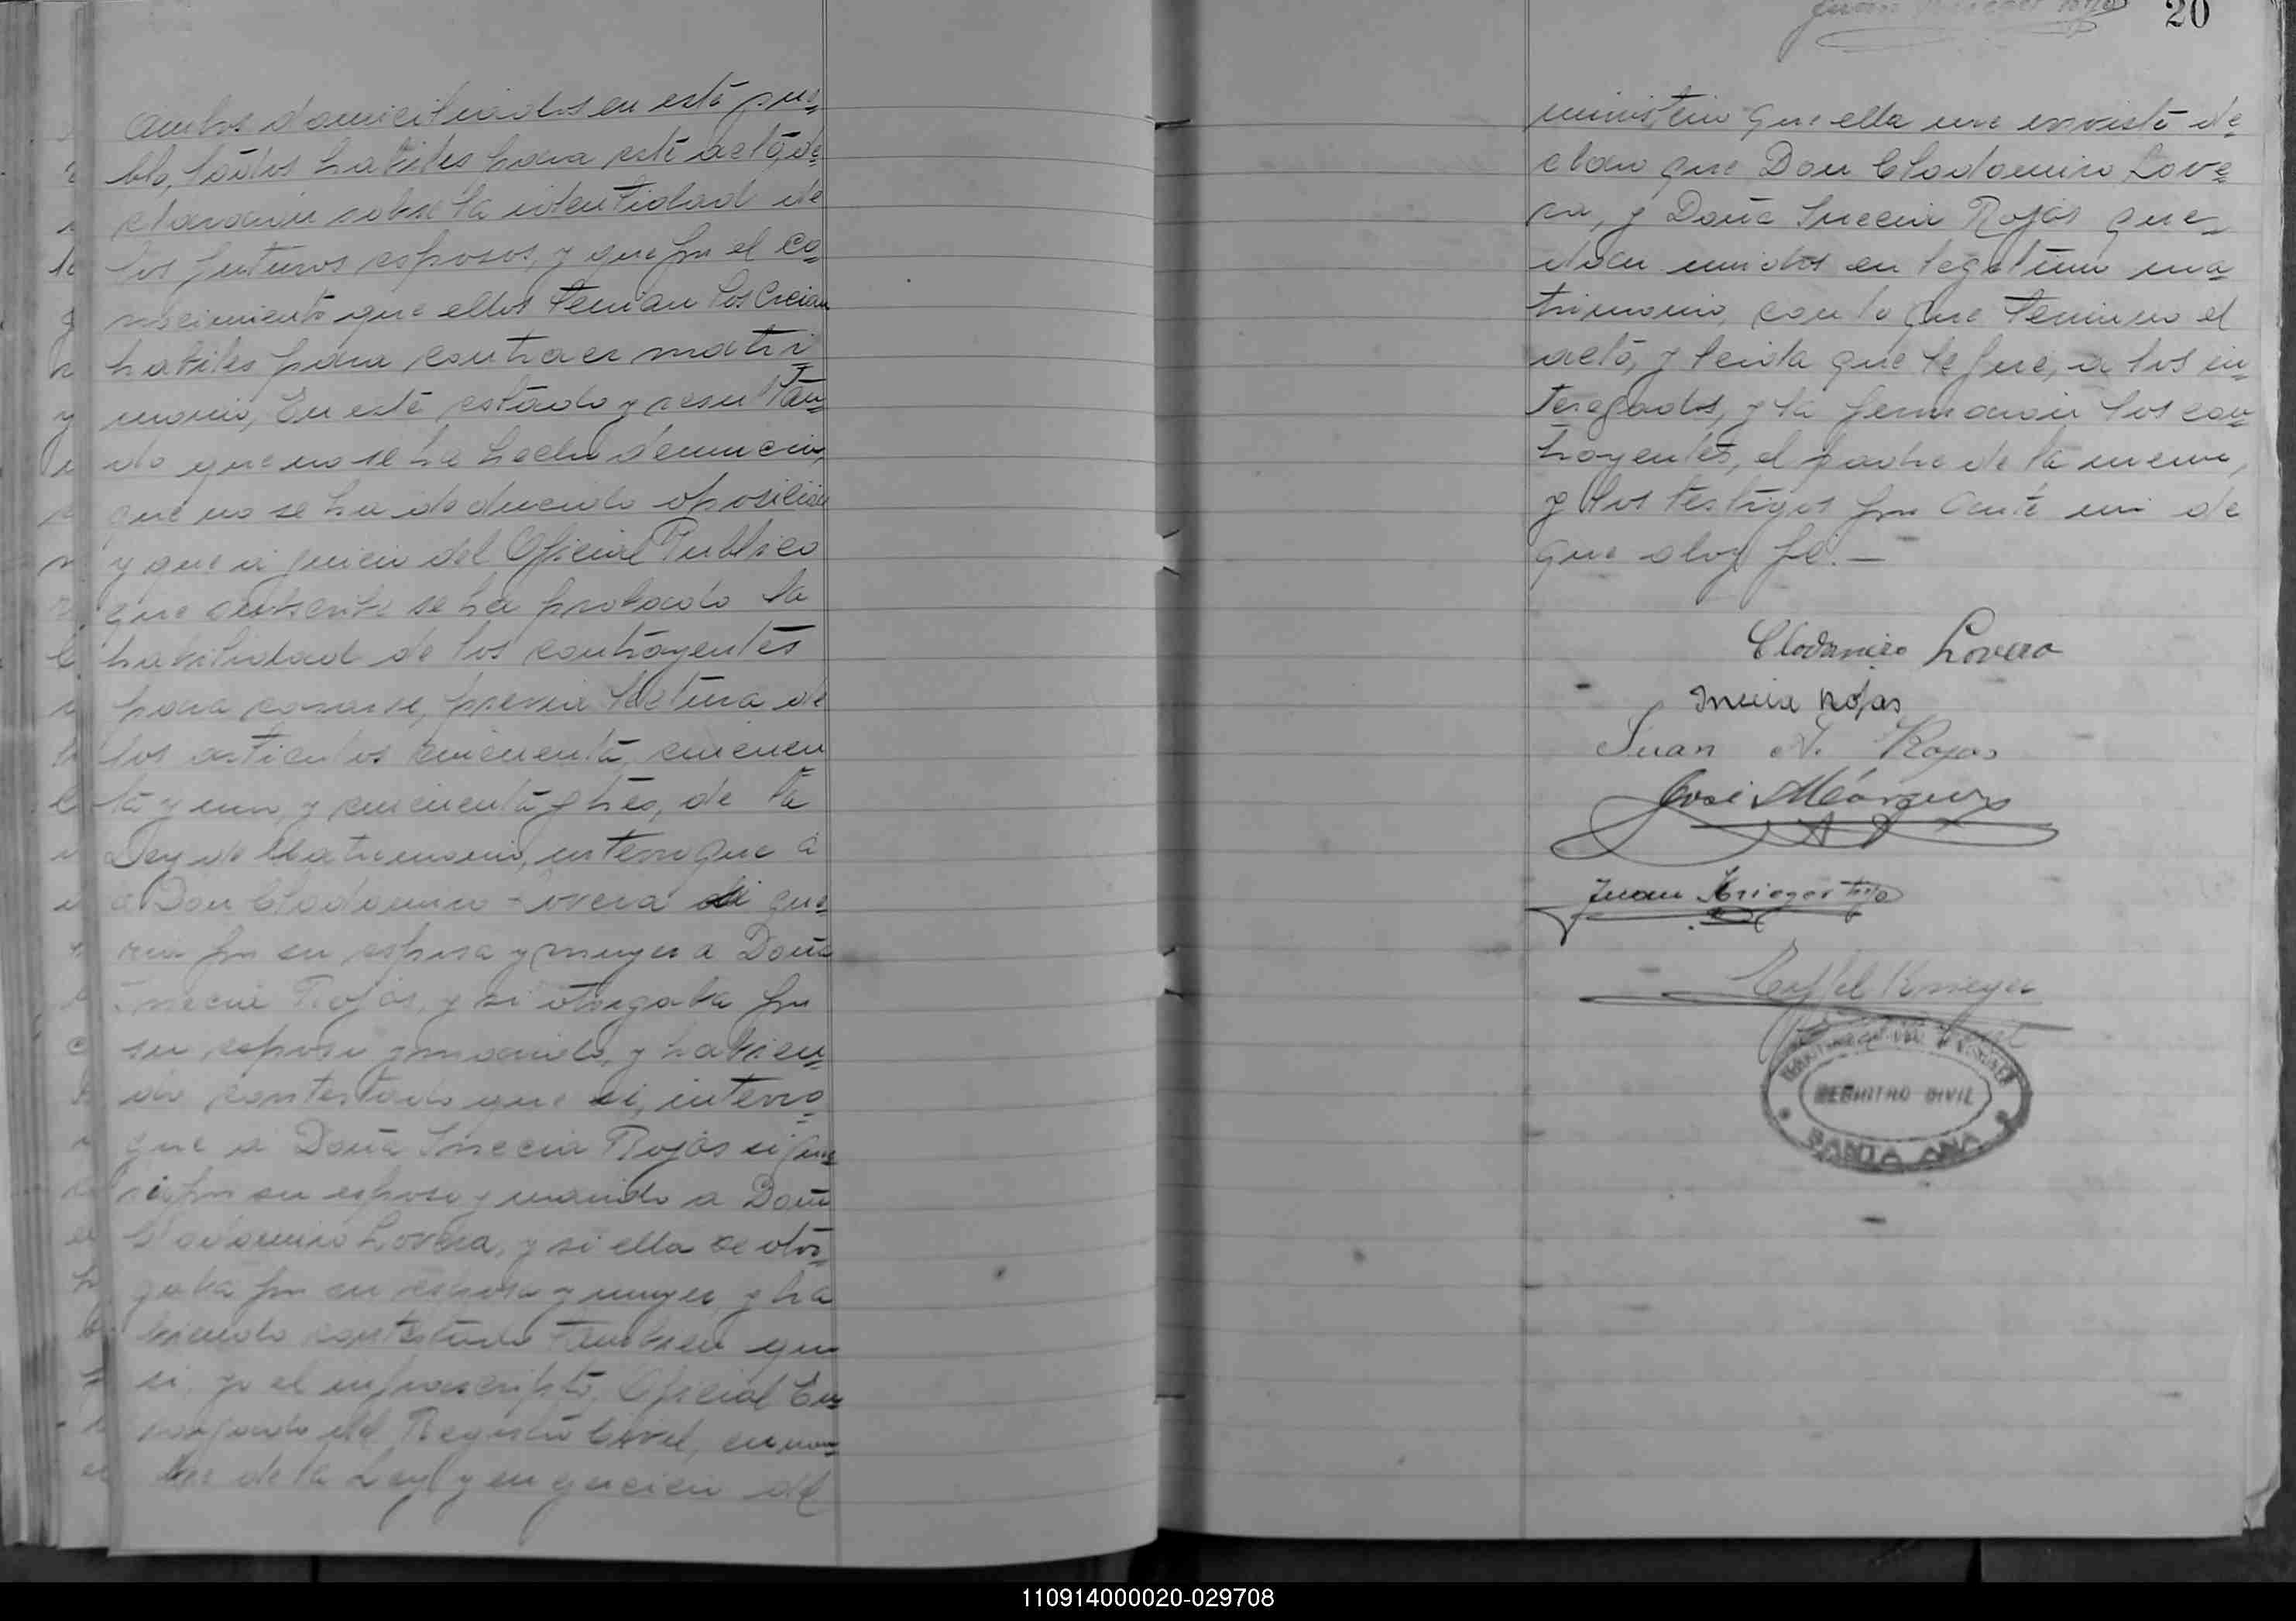 ambos domiciliados en esta pue=
blo, todos habiles para este acto, de=
claracion sobre la identidad de
los futuros esposos, y que por el co=
nocimiento que ellos tenian los creian
habiles para contraer matri
monio, En este estado y resultan=
do que no se ha hecho denuncia,
que no se ha deducido oposicion
y que a juicio del Oficial Publico
que subscribe se ha probado la
habilidad de los contrayentes
para casarse, previa lectura de
los articulos cincuenta, cincuen
ta y uno, y cincuenta y tres, de la
Ley de Matrimonio, interrogue a
a Don Clodomiro Lovera si que=
ria por su esposa y mujer a Doña
Inecia Rojas, y si otorgaba por
su esposo y marido, y habien=
do contestado que si, interro=
gue a Doña Inecia Rojas si que
ria por su esposo y marido a Don
Clodomiro Lovera, y si ella se otor=
gaba por su esposa y mujer, y ha
biendo contestado tambien que
si, yo el infrascripto, Oficial En=
cargado del Registro Civil, en nom=
bre de la Ley y en ejercicio del
20
ministerio que ella me inviste de=
claro que Don Clodomiro Love=
ra, y Doña Inecia Rojas que=
dan unidos en legitimo ma
trimonio, con lo que termino el
acto, y leida que le fue, a los in=
teresados, y la firmaron los con=
trayentes, el padre de la menor,
y los testigos por ante mi de
que doy fe.—
Clodomiro Lovera
Inecia Rojas
Juan A. Rojas
José Márquez
Juan Krieger hijo
REGISTRO CIVIL
SANTA ANA
110914000020-029708